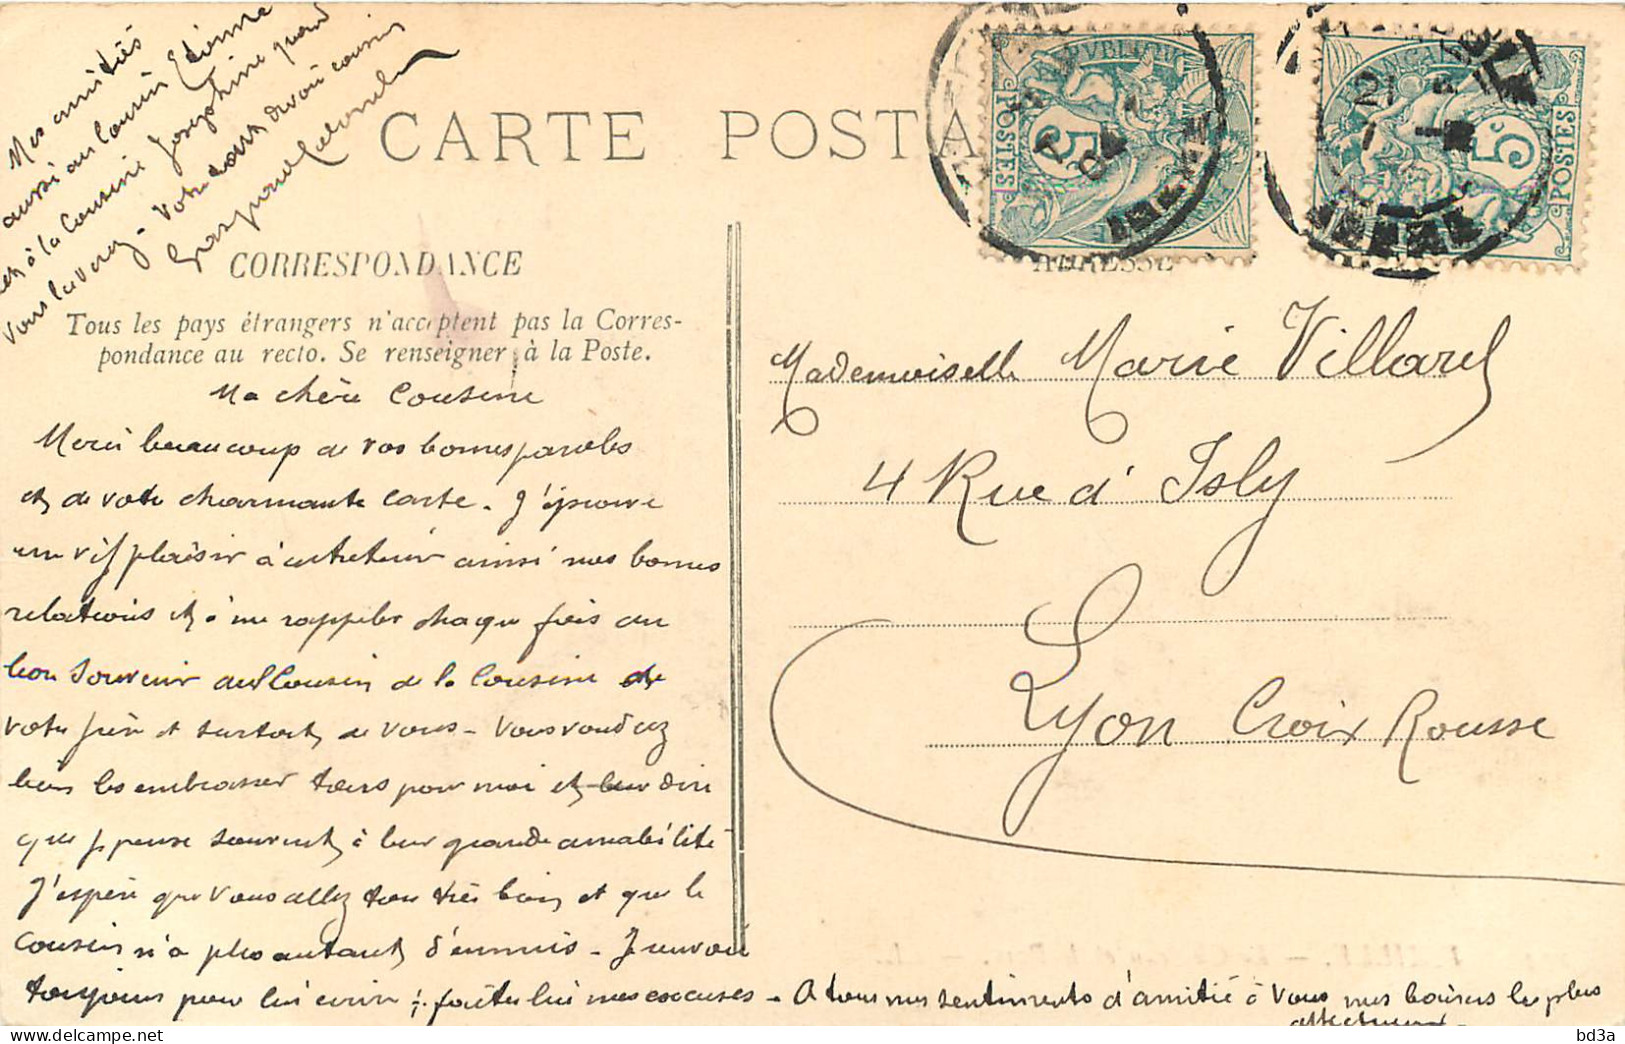 Mes amitiés
aussi au Cousin Etienne
et à la Cousine Josephine quand
vous la verez. Votre tout dévoué cousin
CARTE POSTA
RÉPUBLIQUE
POSTES
5
FRANÇAISE
POSTES
5c
21
CORRESPONDANCE
ADRESSE
Tous les pays étrangers n'acceptent pas la Corres-
pondance au recto. Se renseigner à la Poste.
Ma chère Cousine
Merci beaucoup de vos bonnes paroles
et de votre charmante carte. J'éprouve
un vif plaisir à entretenir ainsi nos bonnes
relations et à me rappeler chaque fois au
bon souvenir du Cousin de la Cousine de
votre frère et surtout de vous - Vous voudrez
bien les embrasser tous pour moi et leur dire
que je pense souvent à leur grande amabilité
J'espère que vous allez tous très bien et que le
Cousin n'a plus autant d'ennuis - Je
toujours pour lui écrire faites lui mes excuses - A tous mes sentiments d'amitié à Vous mes baisers les plus
affectueux -
Mademoiselle Marie Villard
4 Rue d'Isly
Lyon Croix Rousse
bd3a